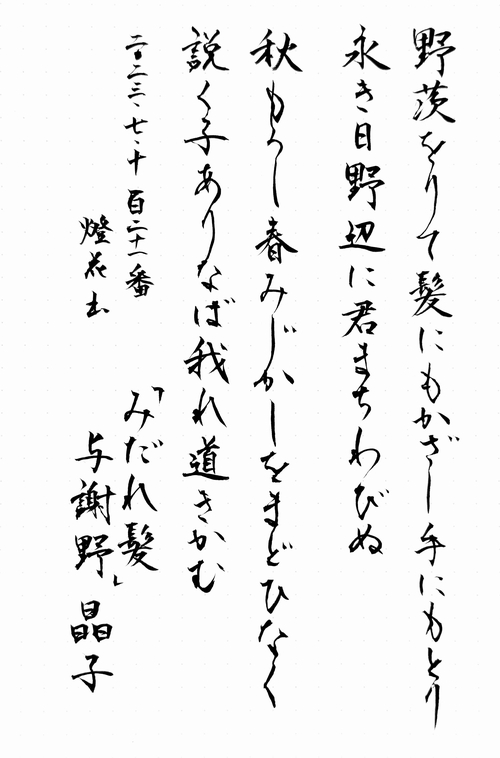 野茨をりて髪にもかざし手にもとり
永き日野辺に君まちわびぬ
秋もろし春みじかしをまどひなく
説く子ありなば我れ道きかむ
二〇二三・七・十 百二十一番
燈花出
「みだれ髪」
与謝野晶子